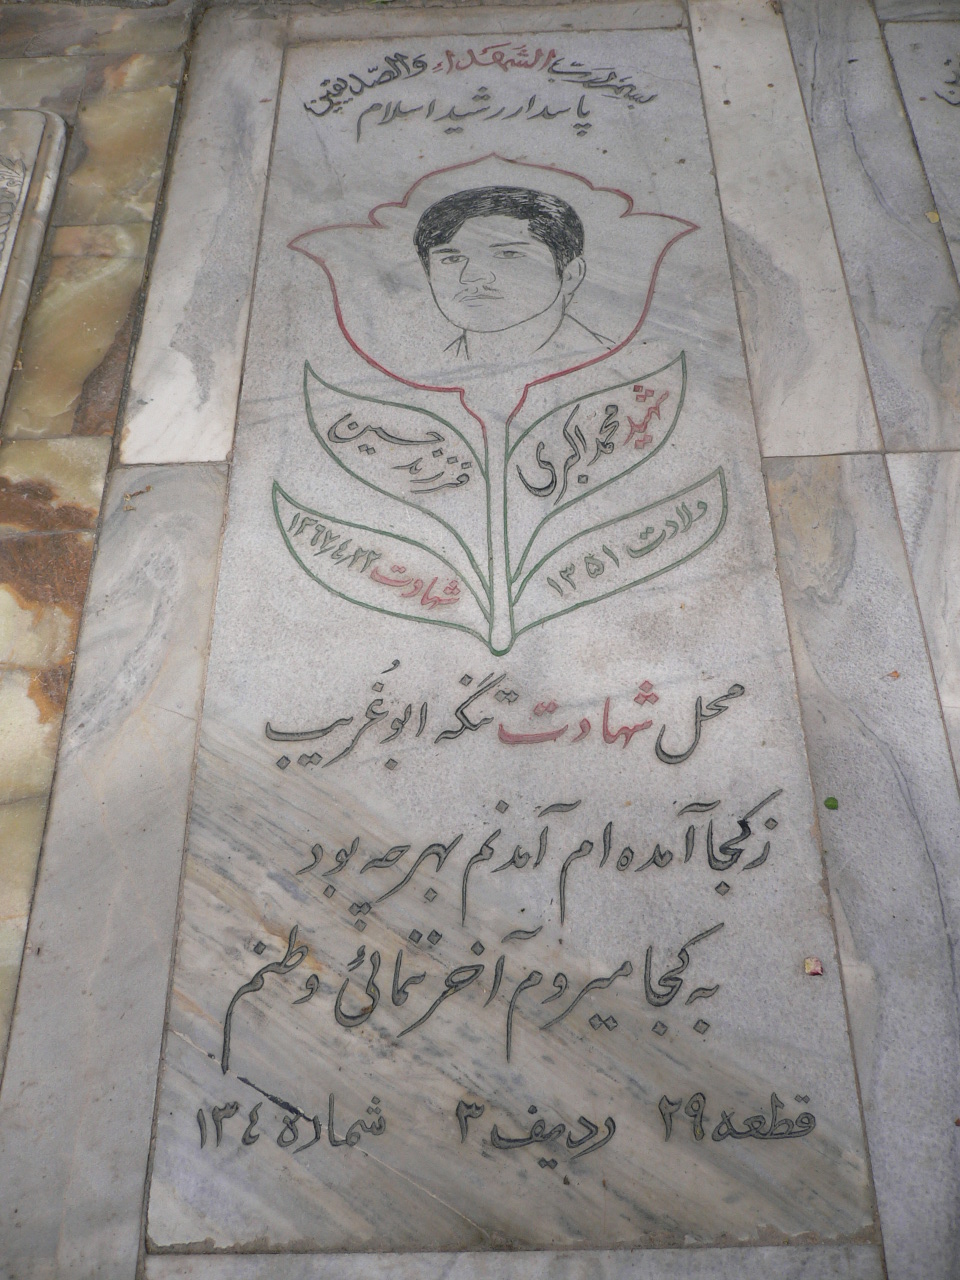 بسم رب الشهداء والصدیقین
پاسدار رشید اسلام
شهید محمد اکبری
فرزند حسین
ولادت ۱۳۵۱
شهادت ۱۳۶۷/۴/۲۲
محل شهادت تنگه ابوغُریب
ز کجا آمده ام آمدنم بهر چه بود
به کجا میروم آخر ننمائی وطنم
قطعه ۲۹ ردیف ۳ شماره ۱۳۴